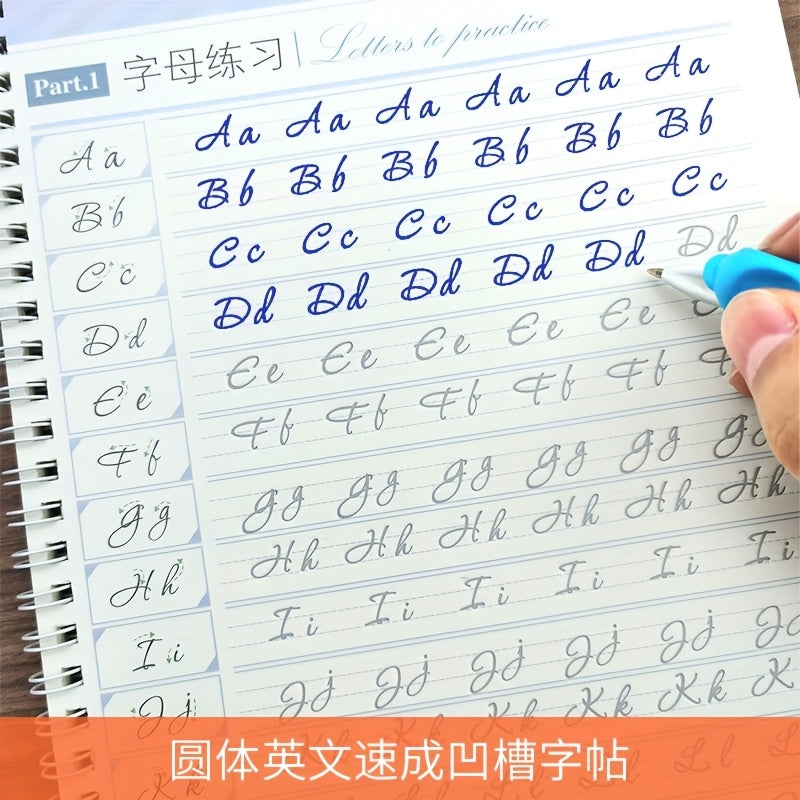 Part.1 字母练习 Letters to practice
Aa Aa Aa Aa Aa Aa Aa
Bb Bb Bb Bb Bb Bb Bb
Cc Cc Cc Cc Cc Cc Cc
Dd Dd Dd Dd Dd Dd Dd
Ee Ee Ee Ee Ee Ee
Ff Ff Ff Ff Ff Ff F
Gg Gg Gg Gg Gg Gg Gg
Hh Hh Hh Hh Hh Hh Hh
Ii Ii Ii Ii Ii Ii Ii
Jj Jj Jj Jj Jj Jj J
Kk Kk Kk Kk Kk Kk K
圆体英文速成凹槽字帖
Ll L